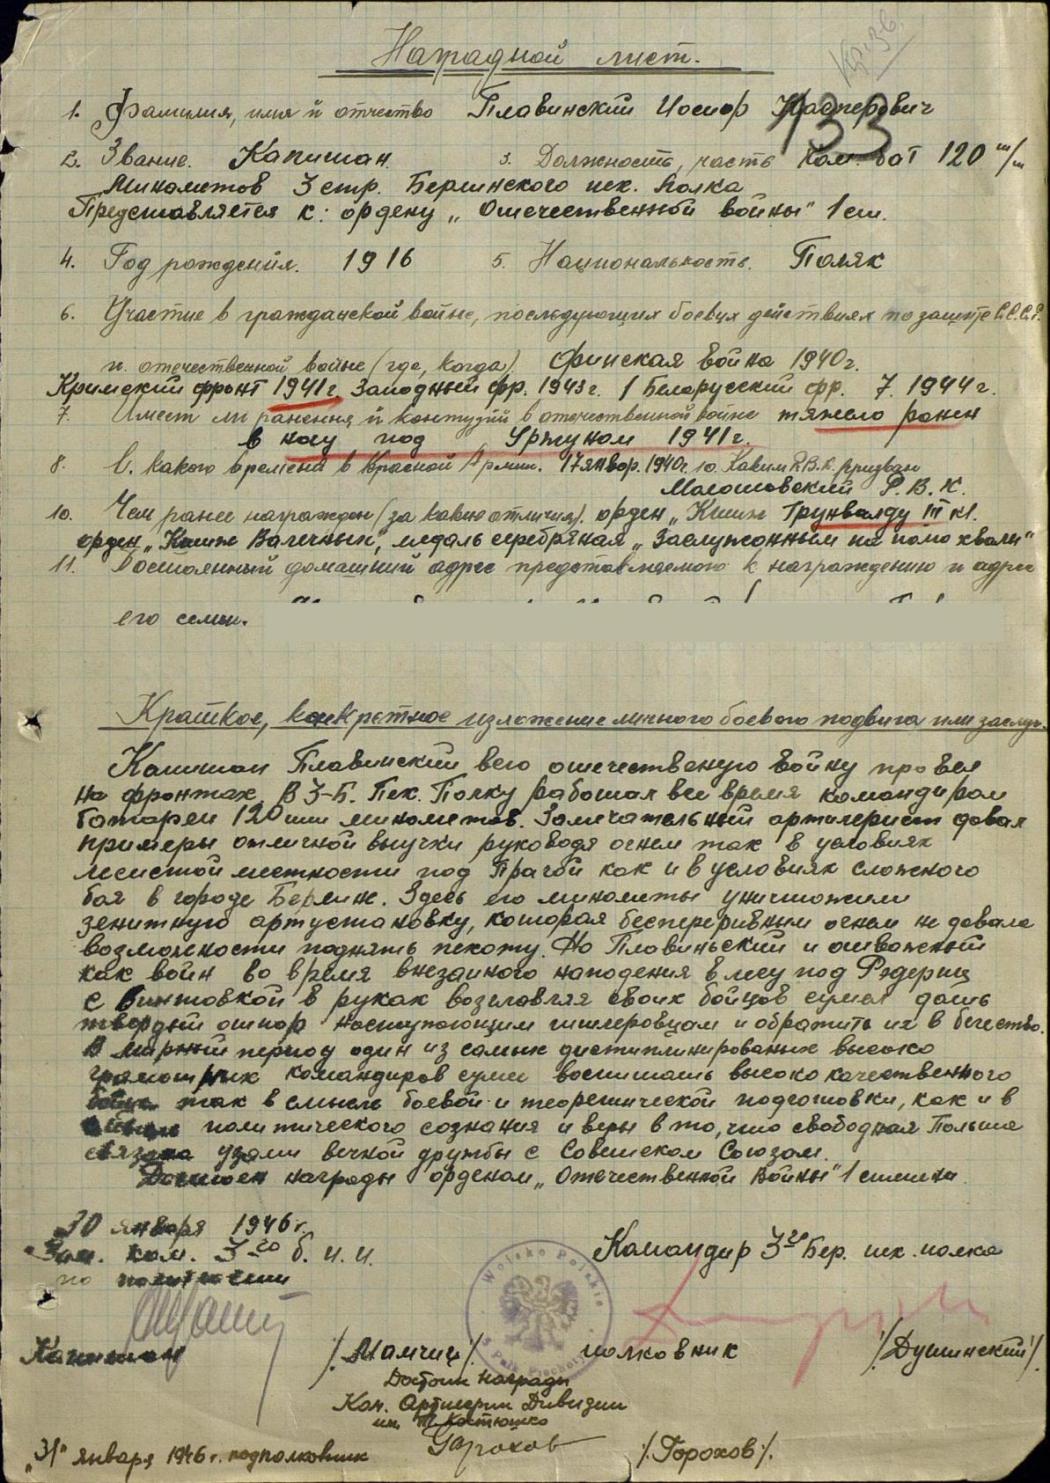 Наградной лист.
1. Фамилия, имя и отчество Плавинский Иосиф Касперович
133
2. Звание. Капитан. 3. Должность, часть Ком. бат 120 m/m
Минометов 3 стр. Берлинского пех. Полка
Представляется к: ордену „Отечественной войны" 1 ст.
4. Год рождения. 1916 5. Национальность. Поляк
6. Участие в гражданской войне, последующих боевых действиях по защите С.С.С.Р.
и отечественной войне (где, когда) финская война 1940г.
Кримский фронт 1941г. Западный фр. 1943г. 1 Белорусский фр. 7. 1944г.
7. Имеет ли ранения и контузии в отечественной войне тяжело ранен
в ногу под 1941г.
8. С какого времени в Красной Армии. 17 янвр. 1940г. Р.В.К. призван
Р.В.К.
10. Чем ранее награжден (за какие отличия). орден „Кшиж Грунвальду III кл.
орден „Кшиж Валечных", медаль серебряная „Заслужонным на поло хвалы"
11. Постоянный домашний адрес представляемого к награждению и адрес
его семьи.
Краткое, конкретное изложение личного боевого подвига или заслуг.
Капитан Плавинский всю отечественую войну провел
на фронтах. В 3-Б. Пех. Полку работал все время командиром
батареи 120 мм минометов. Замечательный артилерист давал
примеры отличной выучки руководя огнем так в условиях
лесистой местности под Прагой как и в условиях сложного
боя в городе Берлин. Здесь его минометы уничтожили
зенитную артустановку, которая беспереривным огнем не давала
возможности поднять пехоту. Но Плавиньский и отважный
как воин во время внезапного нападения в лесу под
с винтовкой в руках возглавляя своих бойцов сумел дать
твердый отпор наступающим гитлеровцам и обратить их в бегство.
В мирный период один из самых дистиплинированых высоко
грамотных командиров сумел воспитать высоко качественного
бойца так в смысле боевой и теоретической подготовки, как и в
политического сознания и веры в то, что свободная Польша
связана узами вечной дружбы с Советском Союзом.
Достоен награды орденом „Отечественной Войны" 1 степени
30 января 1946г.
Зам. ком. 3го б. п. п. Командир 3го Бер. пех. полка
по политчасти
Wojsko Polskie
Капитан /Мамчиц/. полковник /Душинский/.
Достоин награды
Ком. Артилерии Дивизии
им. Т. Костюшко
Горохов
„31" января 1946г. подполковник /Горохов/.